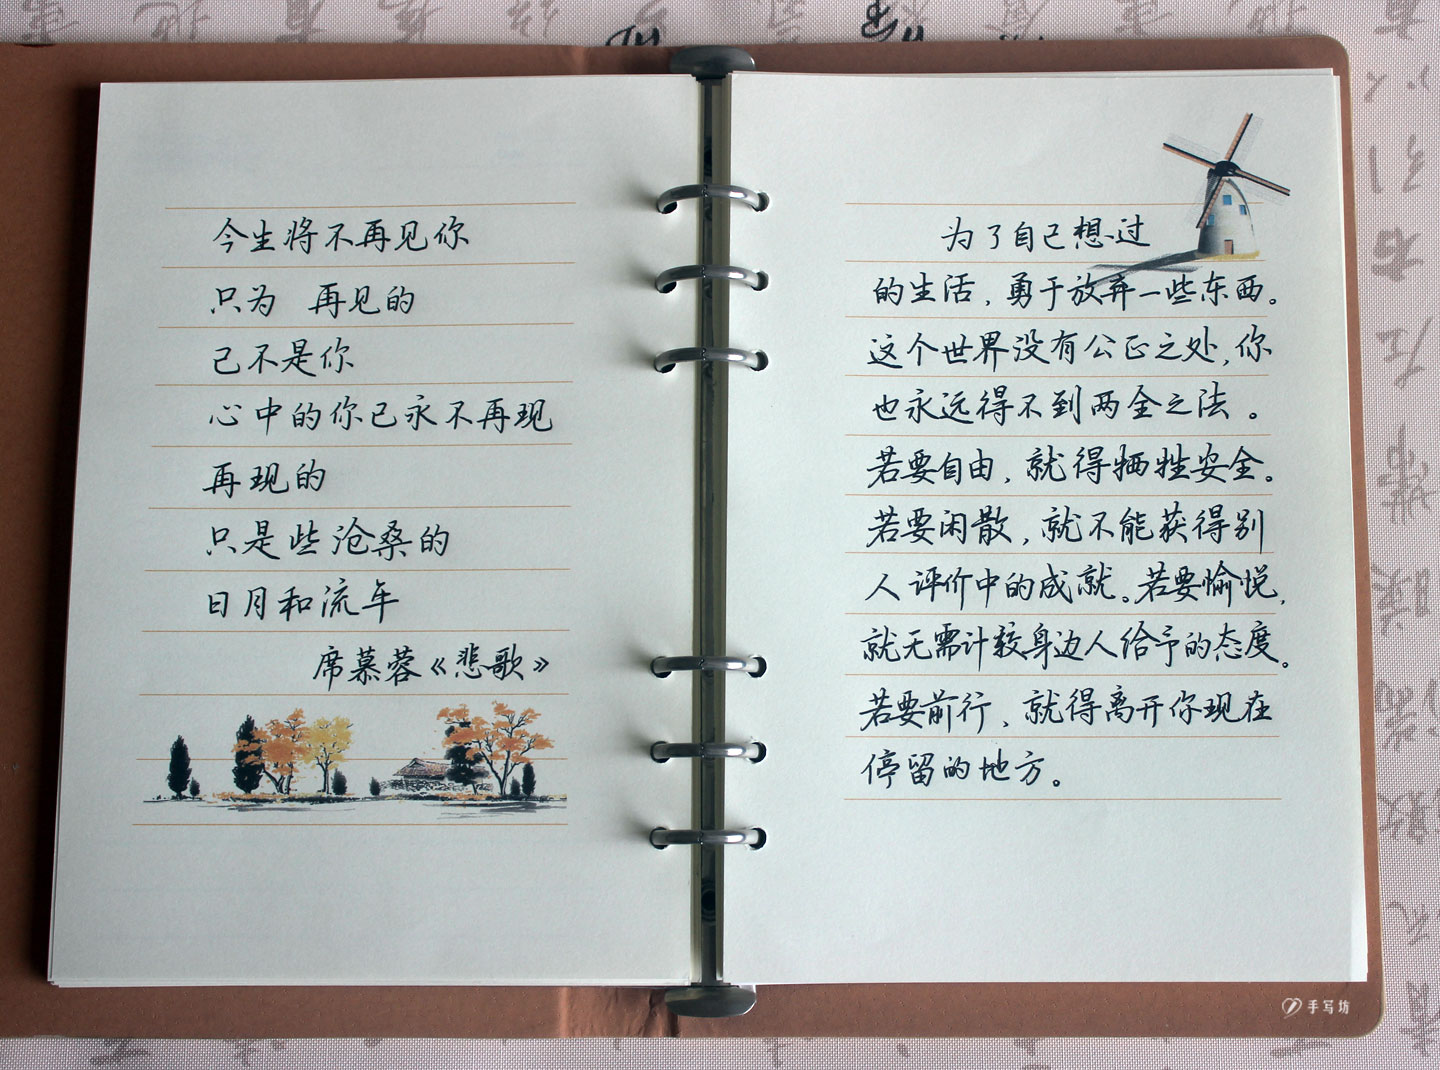 今生将不再见你
只为 再见的
已不是你
心中的你已永不再现
再现的
只是些沧桑的
日月和流年
席慕蓉《悲歌》
为了自己想过
的生活，勇于放弃一些东西。
这个世界没有公正之处，你
也永远得不到两全之法。
若要自由，就得牺牲安全。
若要闲散，就不能获得别
人评价中的成就。若要愉悦，
就无需计较身边人给予的态度。
若要前行，就得离开你现在
停留的地方。
手写坊